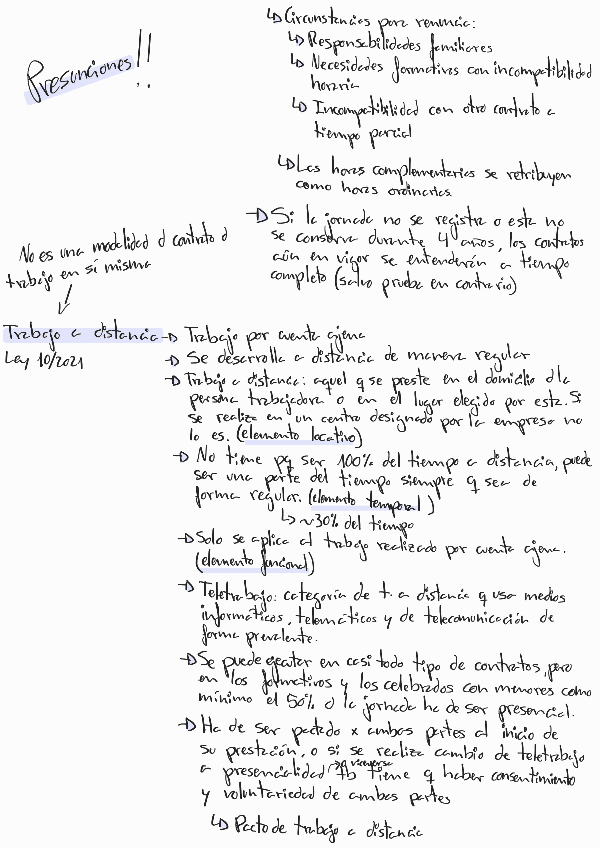 ↳ Circunstancias para renuncia:
↳ Responsabilidades familiares
↳ Necesidades formativas con incompatibilidad
horaria
↳ Incompatibilidad con otro contrato a
tiempo parcial
↳ Las horas complementarias se retribuyen
como horas ordinarias.
Presunciones!!
→ Si la jornada no se registra o esta no
se conserva durante 4 años, los contratos
aún en vigor se entenderán a tiempo
completo (salvo prueba en contrario)
No es una modalidad d contrato d
trabajo en sí misma
Trabajo a distancia
Ley 10/2021
→ Trabajo por cuenta ajena
→ Se desarrolla a distancia de manera regular
→ Trabajo a distancia: aquel q se preste en el domicilio d la
persona trabajadora o en el lugar elegido por esta. Si
se realiza en un centro designado por la empresa no
lo es. (elemento locativo)
→ No tiene pq ser 100% del tiempo a distancia, puede
ser una parte del tiempo siempre q sea de
forma regular. (elemento temporal)
↳ ~30% del tiempo
→ Solo se aplica al trabajo realizado por cuenta ajena.
(elemento funcional)
→ Teletrabajo: categoría de t. a distancia q usa medios
informáticos, telemáticos y de telecomunicación de
forma prevalente.
→ Se puede ejecutar en casi todo tipo de contratos, pero
en los formativos y los celebrados con menores como
mínimo el 50% d la jornada ha de ser presencial.
→ Ha de ser pactado x ambas partes al inicio de
su prestación, o si se realiza cambio de teletrabajo
a presencialidad o viceversa tb tiene q haber consentimiento
y voluntariedad de ambas partes
↳ Pacto de trabajo a distancia